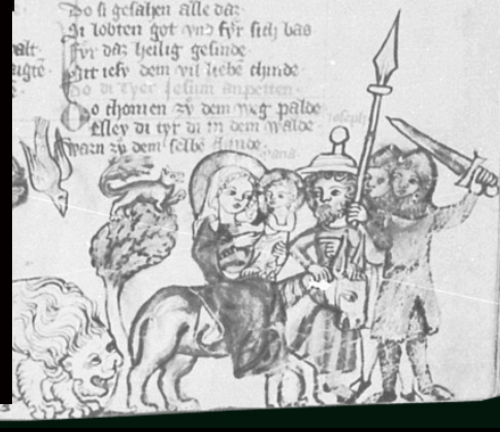 Do si gesahen alle daz
Si lobten got vnd fỹr sich bas
Fỹr daz heilig gesinde
Mit iesv dem vil liebē chinde
Do di Tyer iesum anpetten
Do chomen zv̊ dem weg palde
Elley di tyr di in dem walde
Warn zv̊ dem selbē chinde
alt
aigtē
ioseph
maria